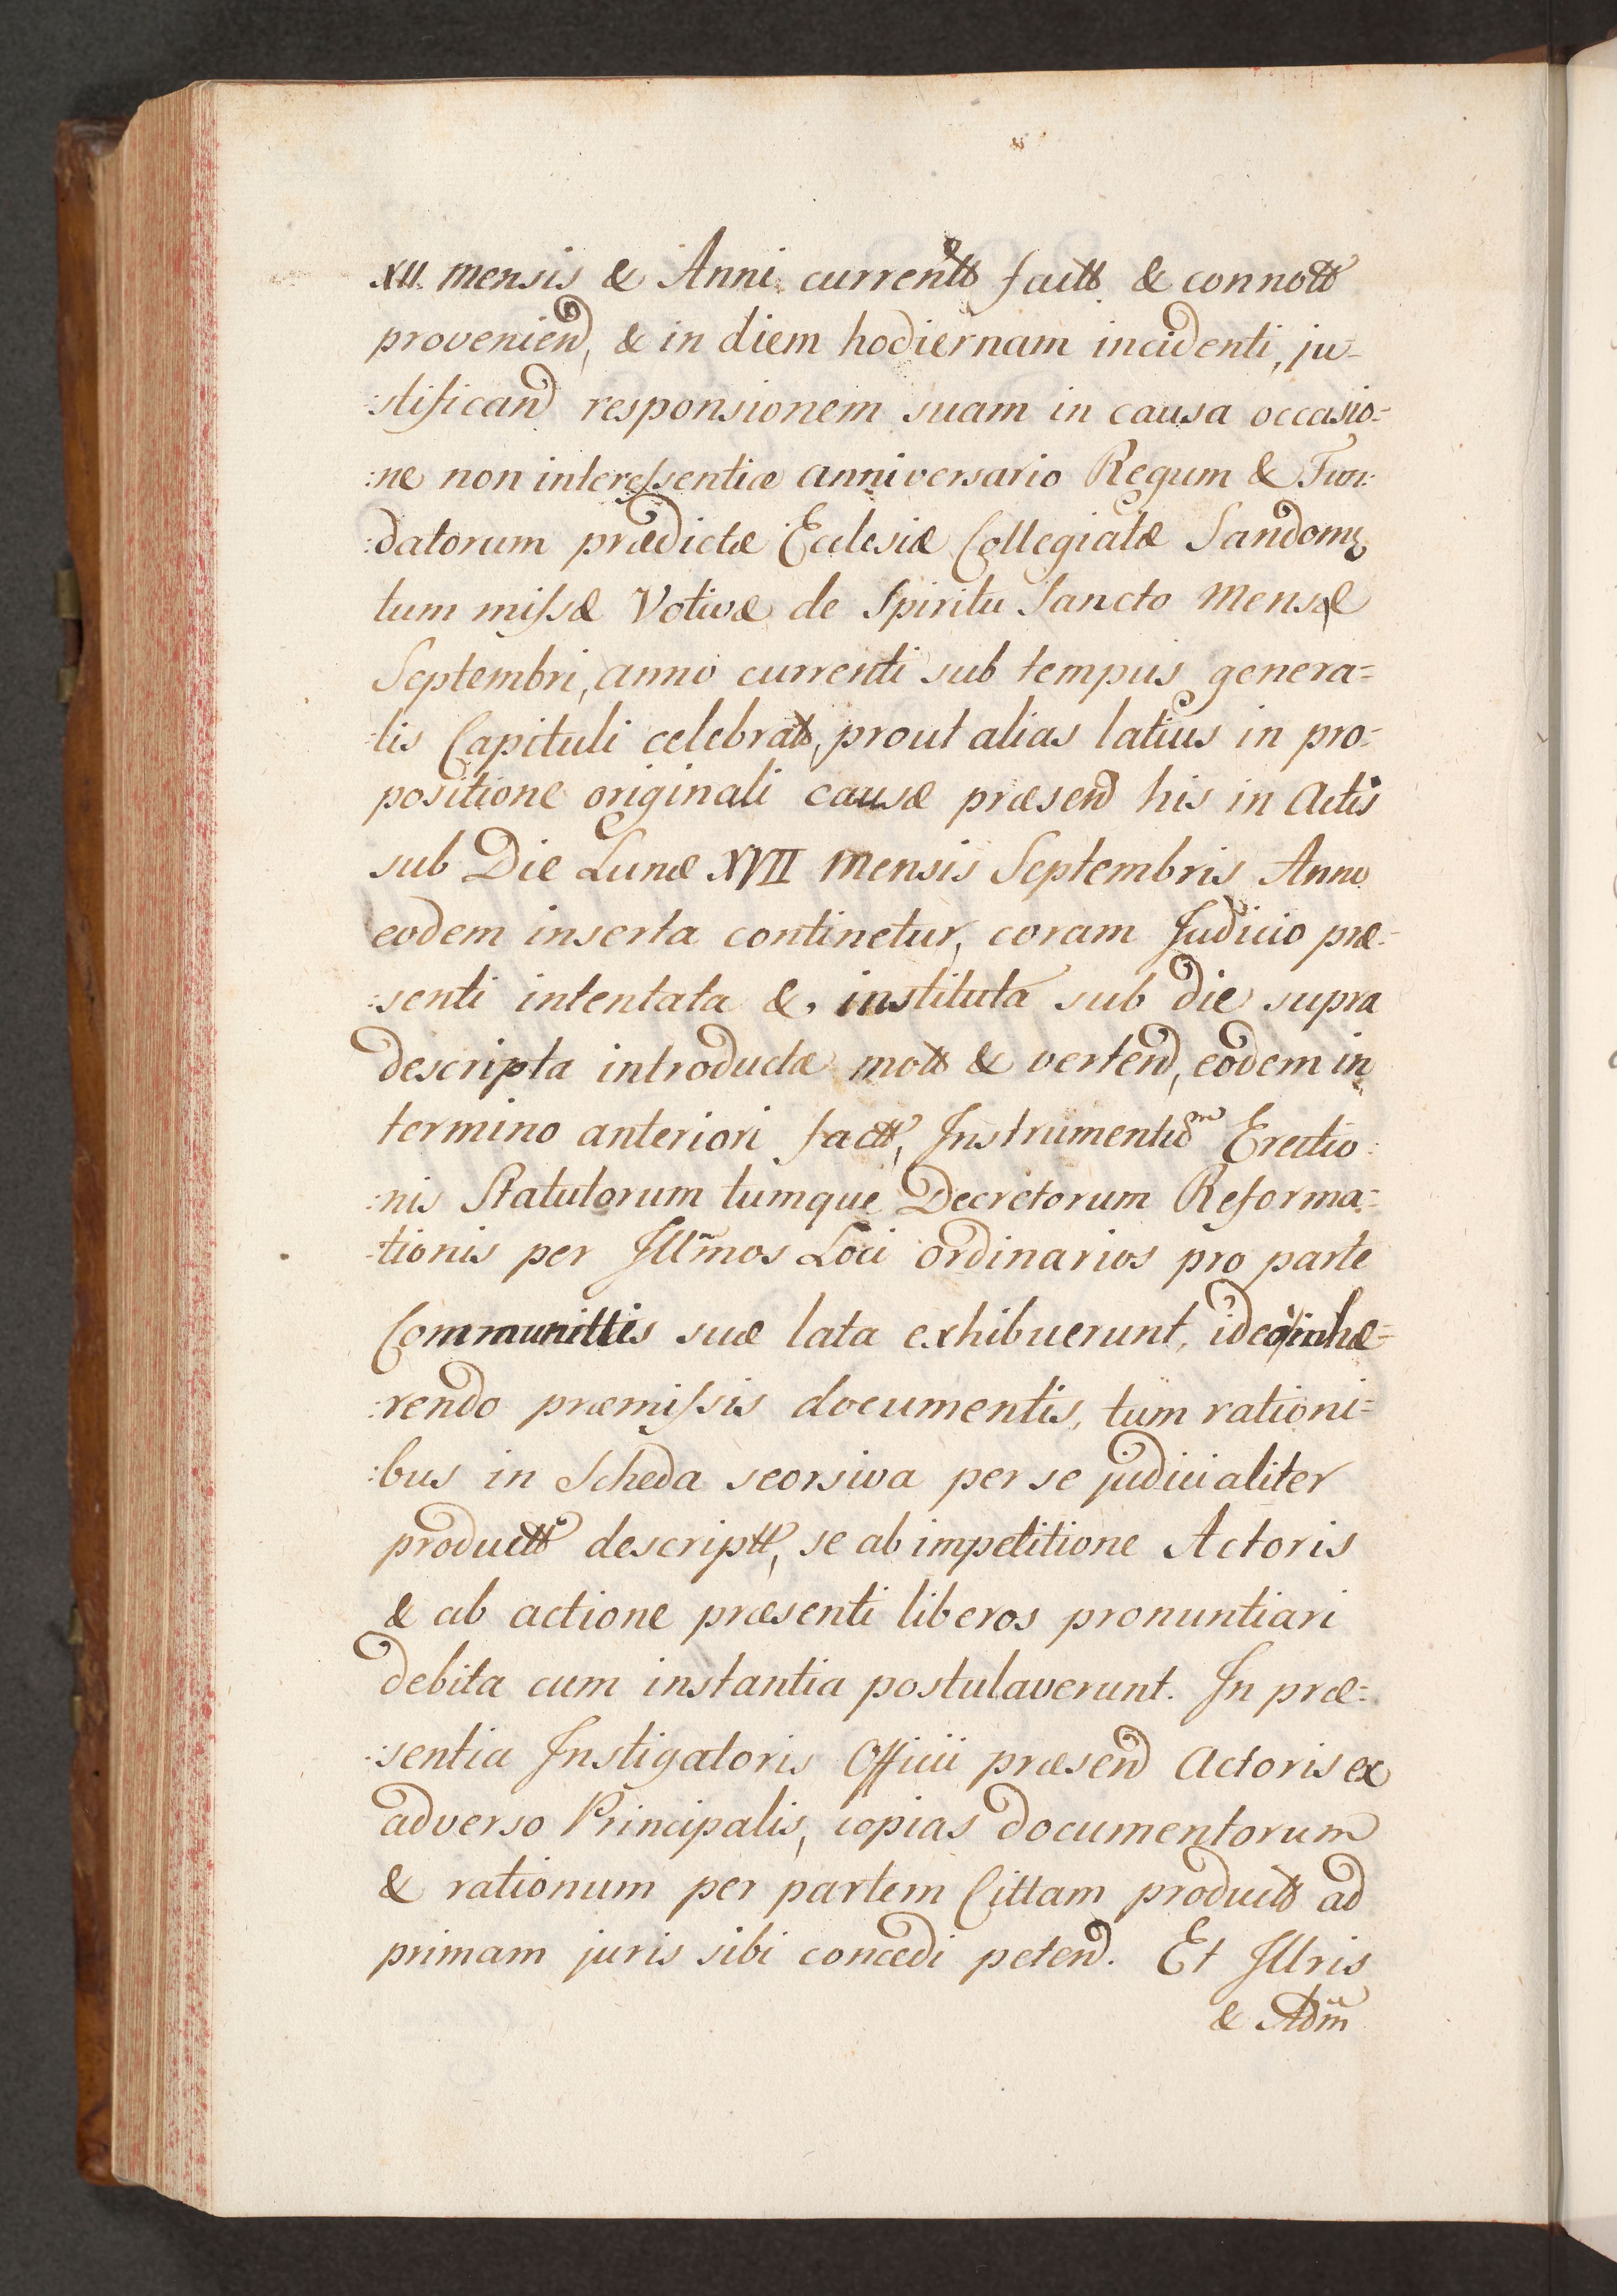 XII. mensis & Anni currentts factts & connotts
proveniend, & in diem hodiernam incidenti, ju-
:stificand responsionem suam in causa occasio=
:ne non interessentiæ anniversario Regum & Fun:
:datorum prædictæ Ecclesiæ Collegiatæ Sandomz
tum missæ Votivæ de Spiritu Sancto Mense
Septembri, anno currenti sub tempus genera=
:lis Capituli celebratts, prout alias latius in pro=
positione originali causæ præsend his in Actis
sub Die Lunæ XVII Mensis Septembris Anno
eodem inserta continetur, coram Judicio præ=
:senti intentata & instituta sub die supra
descripta introductæ motts & vertend, eodem in
termino anteriori factt, Instrumentum Erectio:
:nis Statutorum tumque Decretorum Reforma=
:tionis per Illm̃os Loci ordinarios pro parte
Communittis suæ lata exhibuerunt, ideo inhæ=
:rendo præmissis documentis, tum rationi=
:bus in Scheda seorsiva per se judicialiter
productts descriptt, se ab impetitione Actoris
& ab actione præsenti liberos pronuntiari
debita cum instantia postulaverunt. In præ=
:sentia Instigatoris Officii præsend Actoris ex
adverso Principalis, copias documentorum
& rationum per partem Cittam productts ad
primam juris sibi concedi petend. Et Illris
& Adm̃